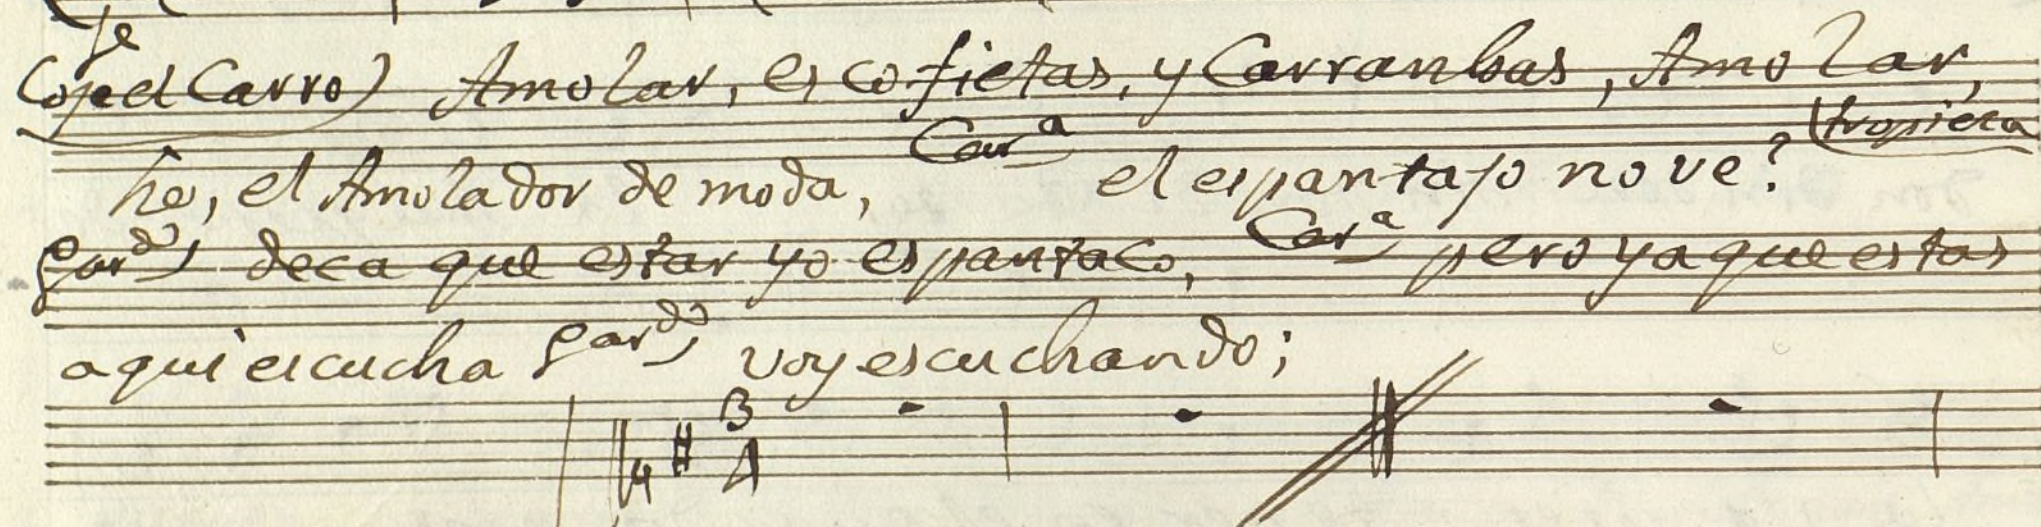 se
Coje el Carro) Amolar, escofietas, y Carranbas, Amolar,
he, el Amolador de moda, Car.ª el espantajo no ve? (tropieza
Gar.do deca que estar yo espantaco, Car.ª pero ya que estas
aqui escucha Gar.do voy escuchando;
3
4